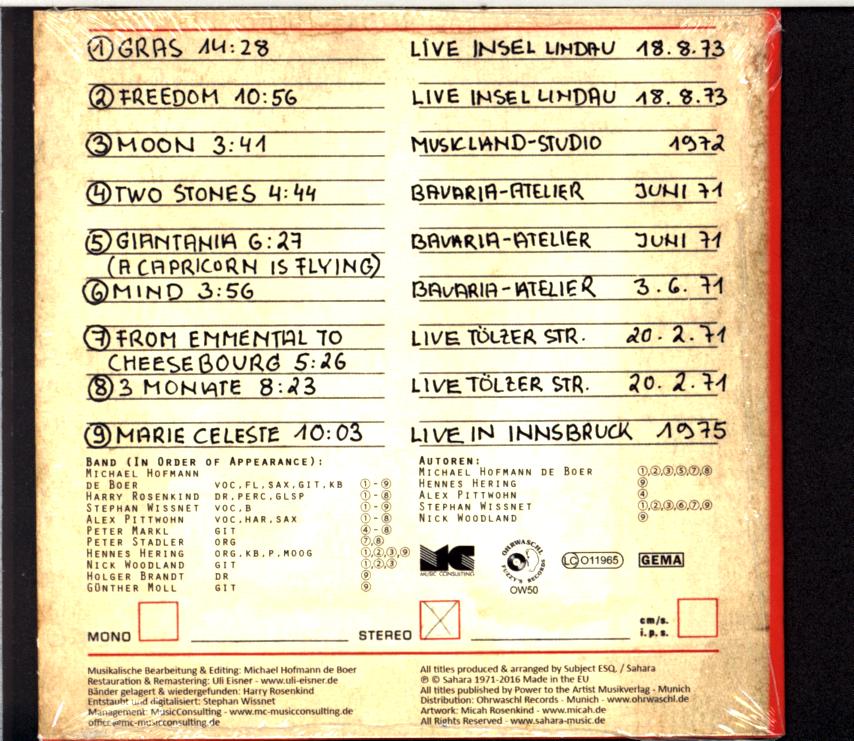 ① GRAS 14:28 LIVE INSEL LINDAU 18.8.73
② FREEDOM 10:56 LIVE INSEL LINDAU 18.8.73
③ MOON 3:41 MUSICLAND-STUDIO 1972
④ TWO STONES 4:44 BAVARIA-ATELIER JUNI 71
⑤ GIANTANIA 6:27 BAVARIA-ATELIER JUNI 71
(A CAPRICORN IS FLYING)
⑥ MIND 3:56 BAVARIA-ATELIER 3.6.71
⑦ FROM EMMENTAL TO LIVE TÖLZER STR. 20.2.71
CHEESEBOURG 5:26
⑧ 3 MONATE 8:23 LIVE TÖLZER STR. 20.2.71
⑨ MARIE CELESTE 10:03 LIVE IN INNSBRUCK 1975
BAND (IN ORDER OF APPEARANCE):
MICHAEL HOFMANN
DE BOER VOC,FL,SAX,GIT,KB ①-⑨
HARRY ROSENKIND DR,PERC,GLSP ①-⑧
STEPHAN WISSNET VOC,B ①-⑧
ALEX PITTWOHN VOC,HAR,SAX ①-⑧
PETER MARKL GIT ④-⑧
PETER STADLER ORG ⑦,⑧
HENNES HERING ORG,KB,P,MOOG ①,②,③,⑨
NICK WOODLAND GIT ①,②,③
HOLGER BRANDT DR ⑨
GÜNTHER MOLL GIT ⑨
AUTOREN:
MICHAEL HOFMANN DE BOER ①,②,③,⑤,⑦,⑧
HENNES HERING ⑨
ALEX PITTWOHN ④
STEPHAN WISSNET ①,②,③,⑥,⑦,⑨
NICK WOODLAND ⑨
MC
MUSIC CONSULTING
OHRWASCHL
FUZZY'S RECORDS
OW50
LC 011965
GEMA
MONO STEREO cm/s.
i.p.s.
Musikalische Bearbeitung & Editing: Michael Hofmann de Boer
Restauration & Remastering: Uli Eisner - www.uli-eisner.de
Bänder gelagert & wiedergefunden: Harry Rosenkind
Entstaubt und digitalisiert: Stephan Wissnet
Management: MusicConsulting - www.mc-musicconsulting.com
office@mc-musicconsulting.de
All titles produced & arranged by Subject ESQ. / Sahara
℗ © Sahara 1971-2016 Made in the EU
All titles published by Power to the Artist Musikverlag - Munich
Distribution: Ohrwaschl Records - Munich - www.ohrwaschl.de
Artwork: Micah Rosenkind - www.micah.de
All Rights Reserved - www.sahara-music.de